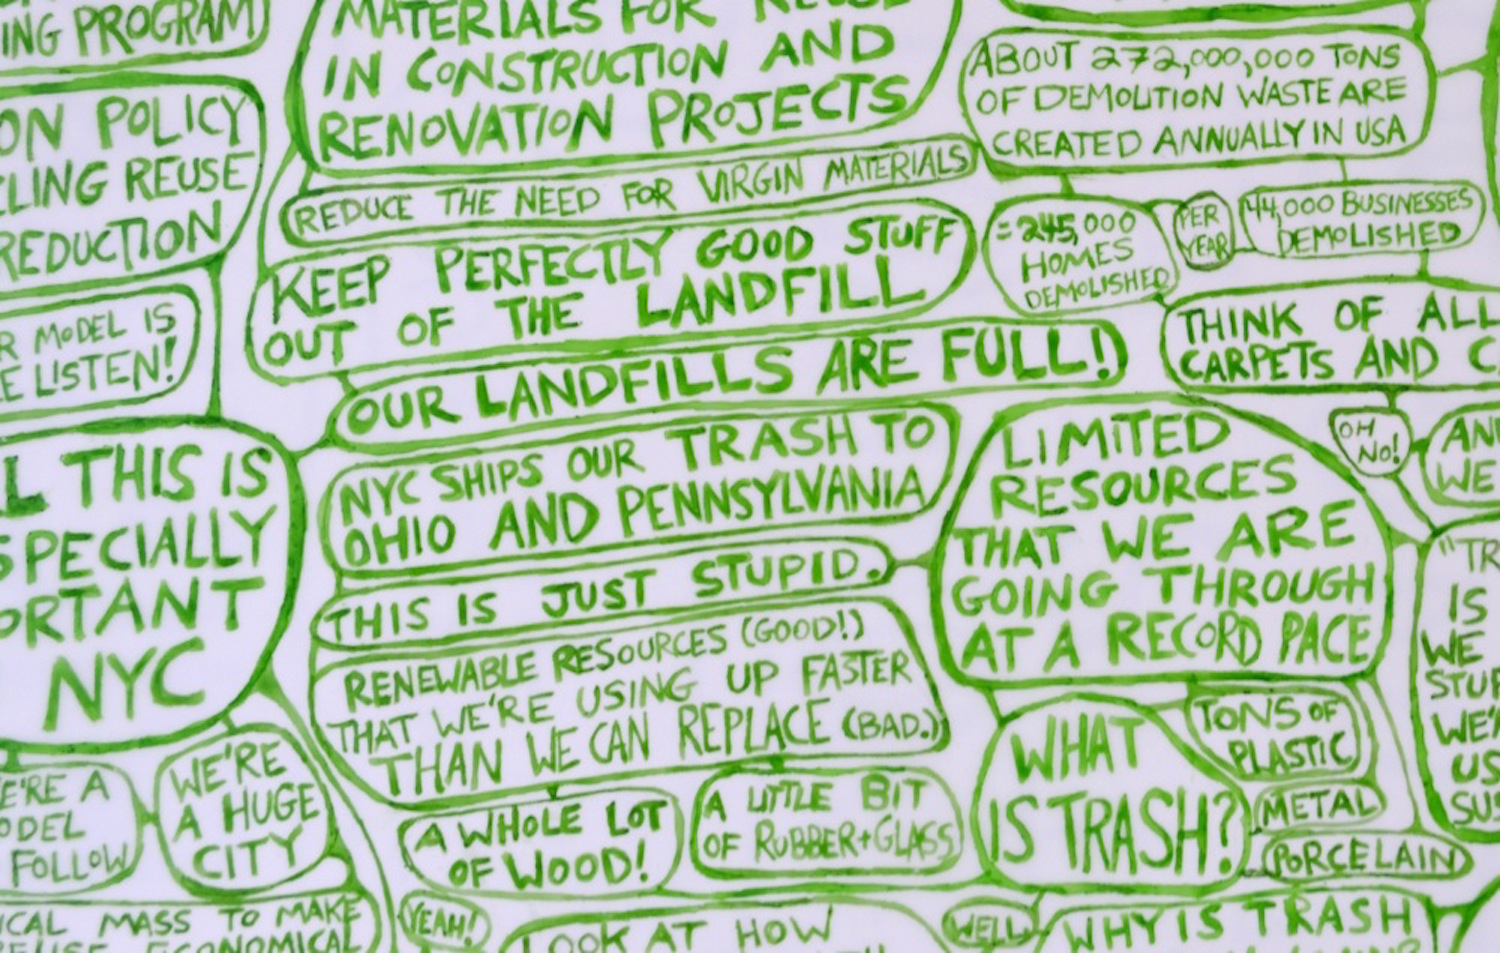 ING PROGRAM)
MATERIALS FOR REUSE
IN CONSTRUCTION AND
RENOVATION PROJECTS
ABOUT 272,000,000 TONS
OF DEMOLITION WASTE ARE
CREATED ANNUALLY IN USA
ON POLICY
CLING REUSE
REDUCTION
REDUCE THE NEED FOR VIRGIN MATERIALS
=245,000
HOMES
DEMOLISHED
PER
YEAR
44,000 BUSINESSES
DEMOLISHED
KEEP PERFECTLY GOOD STUFF
OUT OF THE LANDFILL
R MODEL IS
E LISTEN!
THINK OF ALL
CARPETS AND C
OUR LANDFILLS ARE FULL!)
NYC SHIPS OUR TRASH TO
OHIO AND PENNSYLVANIA
LIMITED
RESOURCES
THAT WE ARE
GOING THROUGH
AT A RECORD PACE
OH
NO!
AN
WE
L THIS IS
SPECIALLY
ORTANT
NYC
THIS IS JUST STUPID.
"TR
IS
WE
STUF
WE'
US
SUS
RENEWABLE RESOURCES (GOOD!)
THAT WE'RE USING UP FASTER
THAN WE CAN REPLACE (BAD.)
WHAT
IS TRASH?
TONS OF
PLASTIC
METAL
PORCELAIN
E'RE A
ODEL
FOLLOW
WE'RE
A HUGE
CITY
A WHOLE LOT
OF WOOD!
A LITTLE BIT
OF RUBBER+GLASS
ICAL MASS TO MAKE
REUSE ECONOMICAL
YEAH!
LOOK AT HOW
WELL
WHY IS TRASH